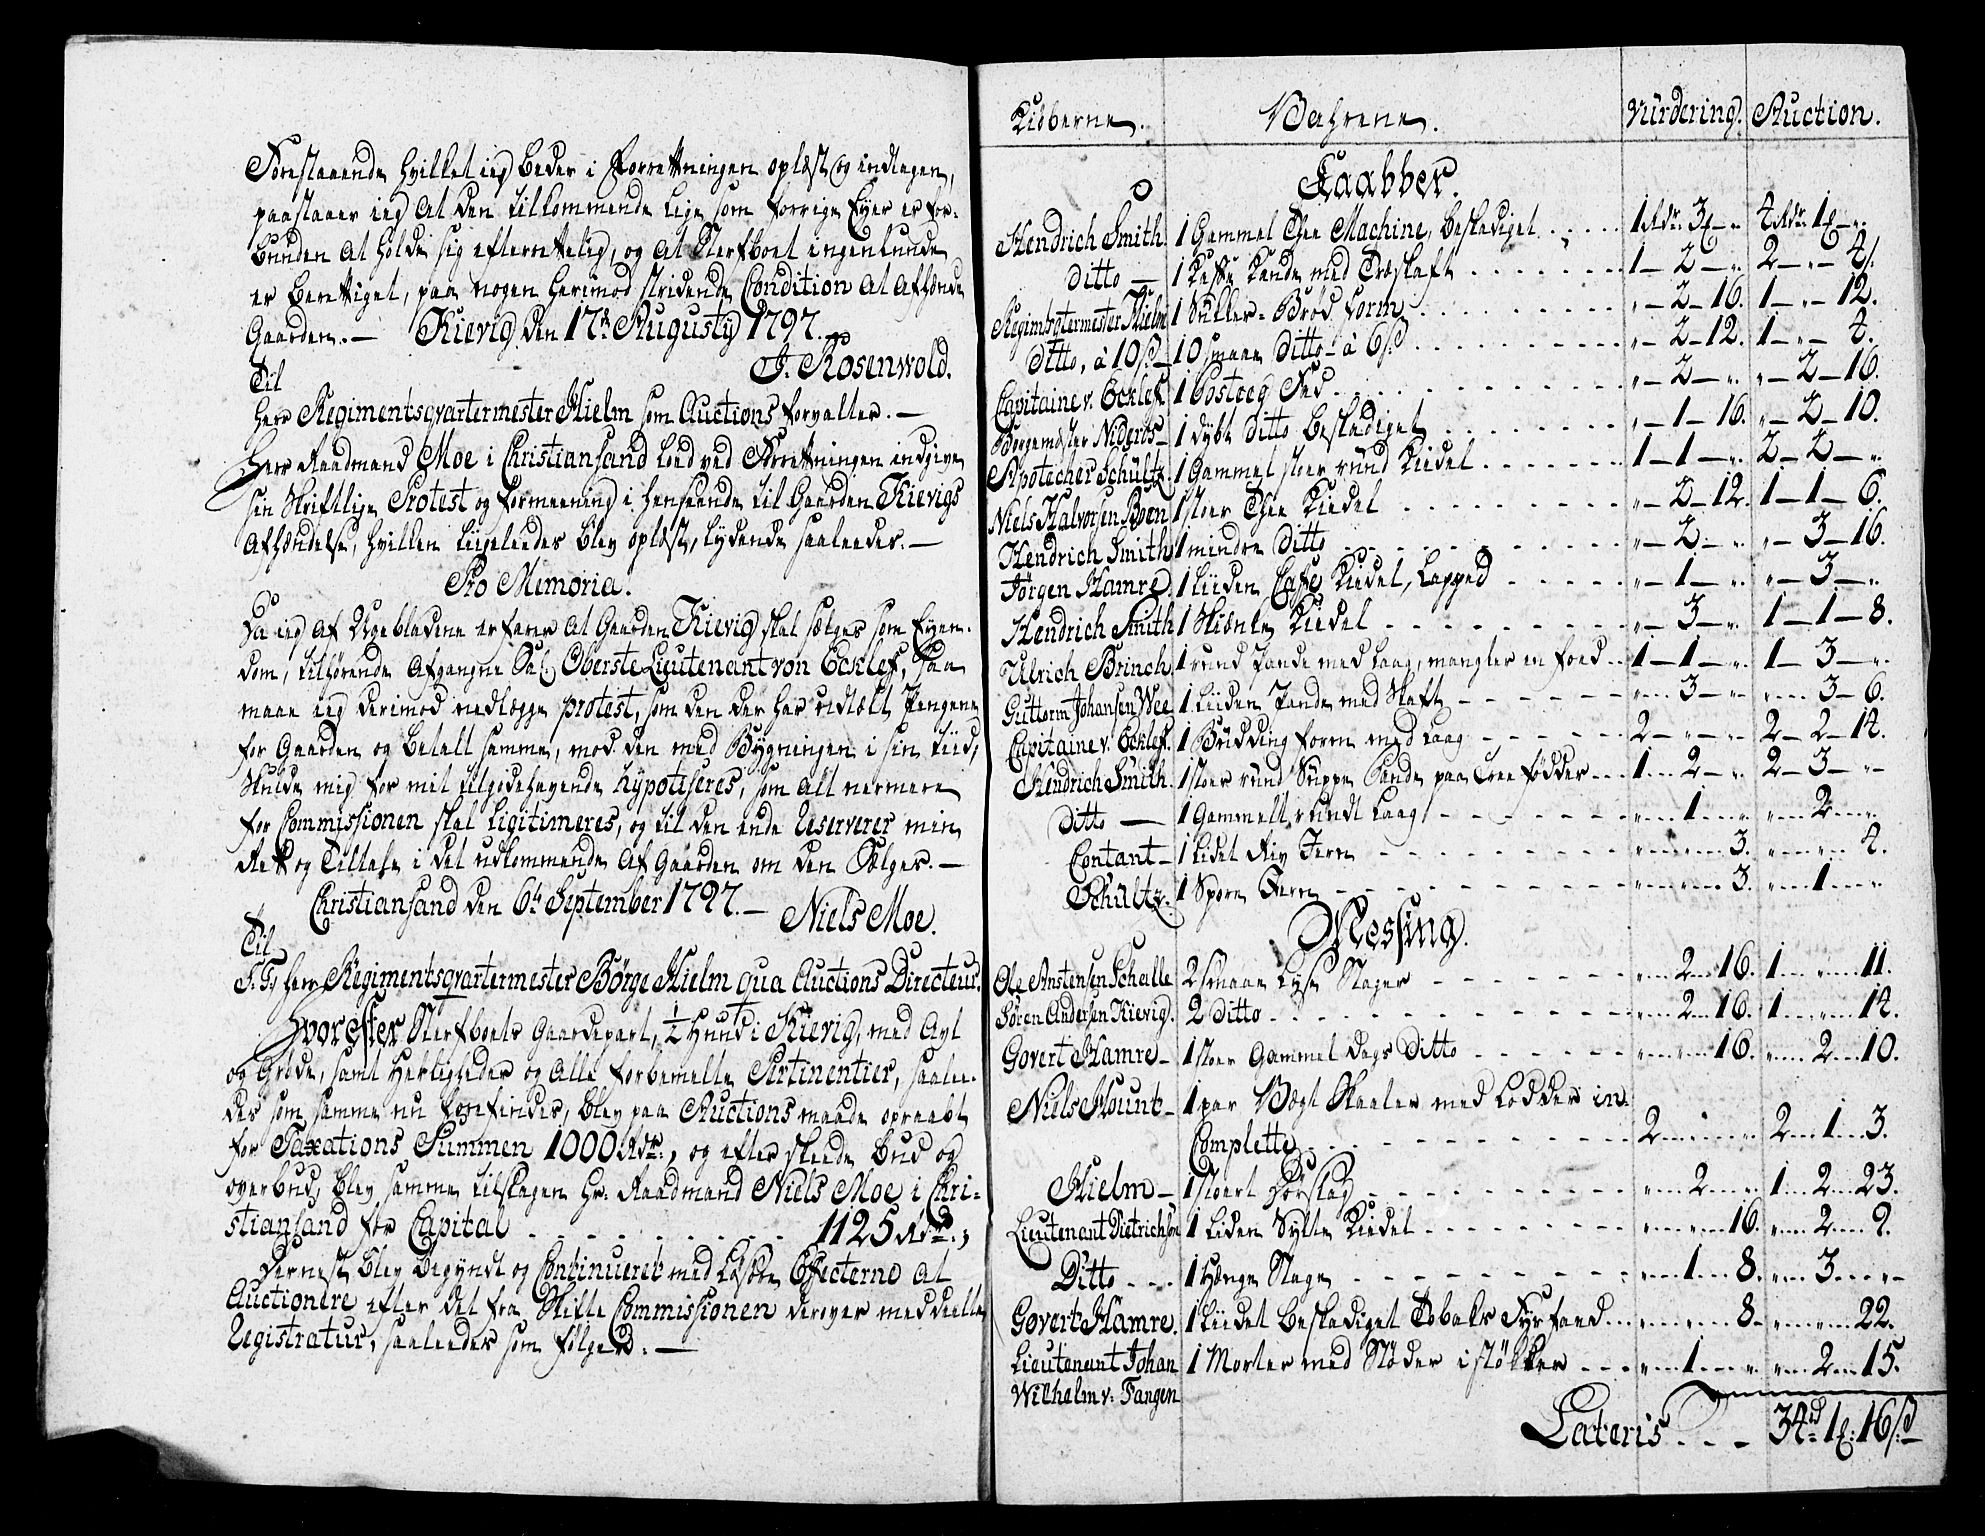 Forestaaende hvilket ieg beder i Forretningen oplæst og indtagen,
paastaaer ieg at den tilkommende lige som forrige Eyer er for-
bunden at holde sig efterrettelig, og at Sterfboet ingenlunde
er berettiget, paa nogen herimod stridende Condition at afhænde
Gaarden. — Kievig den 17de Augusty 1797.
J. Rosenwold.
Til
Herr Regimentsqvartermester Hielm som Auctions forvalter. —
Herr Raadmand Moe i Christiansand loed ved Forretningen indgive
sin skriftlige Protest og formeening i henseende til Gaarden Kievigs
afhændelse, hvilken liigeleedes blev oplæst, lydende saaleedes. —
Pro Memoria.
Da ieg af Ugebladene erfarer at Gaarden Kievig skal sælges som Eyen-
dom, tilhørende afgangne Sal: Oberste Lieutenant von Ecklef, saa
maae ieg derimod nedlægge protest, som den der har udlælt Pengene
for Gaarden og betalt samme, mod den med Bygningen i sin tiid,
skulde mig for mit tilgodehavende hypotiseres, som alt nermere
for Commissionen skal ligitimeres, og til den ende reserverer min
Ret og Tiltale i det udkommende af Gaarden om den Sælges. —
Christiansand den 6te September 1797. — Niels Moe.
Til
S. T. Herr Regimentsqvartermester Börge Hielm qua Auctions Directeur.
Hvorefter Sterfboets Gaardepart, ½ Hud i Kievig, med Avl
og Grøde, samt Herligheder og alle forbemelte Pertinentier, saalee-
des som samme nu forefindes, blev paa Auctions maade opraabt
for Taxations Summen 1000 Rdr., og efter skeede bud og
overbud, blev samme tilslagen Hr. Raadmand Niels Moe i Chri-
stiansand for Capital - - - - - - - 1125 Rdr.,
Dernest blev begyndt og Continueret med løsøre Effecterne at
Auctionere efter det fra Skifte Commissionen derover meddeelte
Registratur, saaleedes som følger. —
Kiøberne. Vahrene. Vurdering. Auction.
Kaabber.
Hendrich Smith. 1 Gammel Thee Machine, beskadiget . . . . 1 Rdr. 3 — „ 4 Rdr. 1 — „
Ditto — 1 Kaffe Kande med Træskaft . . . . . . 1 — 2 — „ 2 — „ — 4 s.
Regimtqtermester Hielm 1 Sukker-Brød form . . . . . . „ — 2 — 16. 1 — „ — 12.
Ditto, à 10 s. — 10 smaae Ditto à 6 s. . . . . . . „ — 2 — 12. 1 — „ — 4.
Capitaine v. Ecklef. 1 Fad . . . . . . „ — 2 — „ „ — 2 — 16.
Borgemæster Nideros — 1 dybt Ditto beskadiget . . . . . . „ — 1 — 16. „ — 2 — 10.
Apotecher Schültz. 1 Gammel stoer rund Kiedel . . . . . . 1 — 1 — „ 2 — 2 — „
Niels Halvorsen Boen 1 stoer Thee Kiedel . . . . . . „ — 2 — 12. 1 — 1 — 6.
Hendrich Smith 1 mindre Ditto . . . . . . „ — 2 — „ „ — 3 — 16.
Jørgen Hamre. 1 liiden Caffe Kiedel, Lapped . . . . . . „ — 1 — „ „ — 3 — „
Hendrich Smith 1 Skiænke Kiedel . . . . . . „ — 3 — „ 1 — 1 — 8.
Ulrich Brinch. 1 rund Pande med Laag, mangler en foed . . 1 — 1 — „ 1 — 3 — „
Guttorm Johansen Wee 1 liiden Pande med Skaft . . . . . . „ — 3 — „ „ — 3 — 6.
Capitaine v. Ecklef. 1 Budding form med Laag . . . . . . 2 — „ — „ 2 — 2 — 14.
Hendrich Smith. 1 stoer rund Suppe Pande paa Tree fødder . . . 1 — 2 — „ 2 — 3 — „
Ditto — 1 Gammelt rundt Laag . . . . . . „ — 1 — „ „ — 2 — „
Contant — 1 lidet Riv Jern . . . . . . „ — „ — 3. „ — „ — 4.
Schultz. 1 Spore Jern . . . . . . „ — „ — 3. „ — 1 — „
Messing.
Ole Anstensen Schalle 2 smaae Lyse Stager . . . . . . „ — 2 — 16. 1 — „ — 11.
Søren Andersen Kievig. 2 Ditto . . . . . . „ — 2 — 16. 1 — „ — 14.
Govert Hamre — 1 stoer Gammel Dags Ditto . . . . . . „ — „ — 16. „ — 2 — 10.
Niels Mount — 1 par Vægt Skaaler med Lodder in-
Complette . . . . . . 2 — „ — „ 2 — 1 — 3.
Hielm — 1 stoert Dørslag . . . . . . „ — 2 — „ 1 — 2 — 23.
Lieutenant Dietrichson 1 liden Sylte Kiedel . . . . . . „ — „ — 16. „ — 2 — 9.
Ditto . . . 1 Hænge Stage . . . . . . „ — 1 — 8. „ — 3 — „
Govert Hamre. 1 liidet beskadiget Tobaks Fyrfaed . . . „ — „ — 8. „ — „ — 22.
Lieutenant Johan 1 Morter med Støder i støkker . . . „ — 1 — „ „ — 2 — 15.
Wilhelm v. Tangen
Lateris . . . 34 rd 1 16 s.